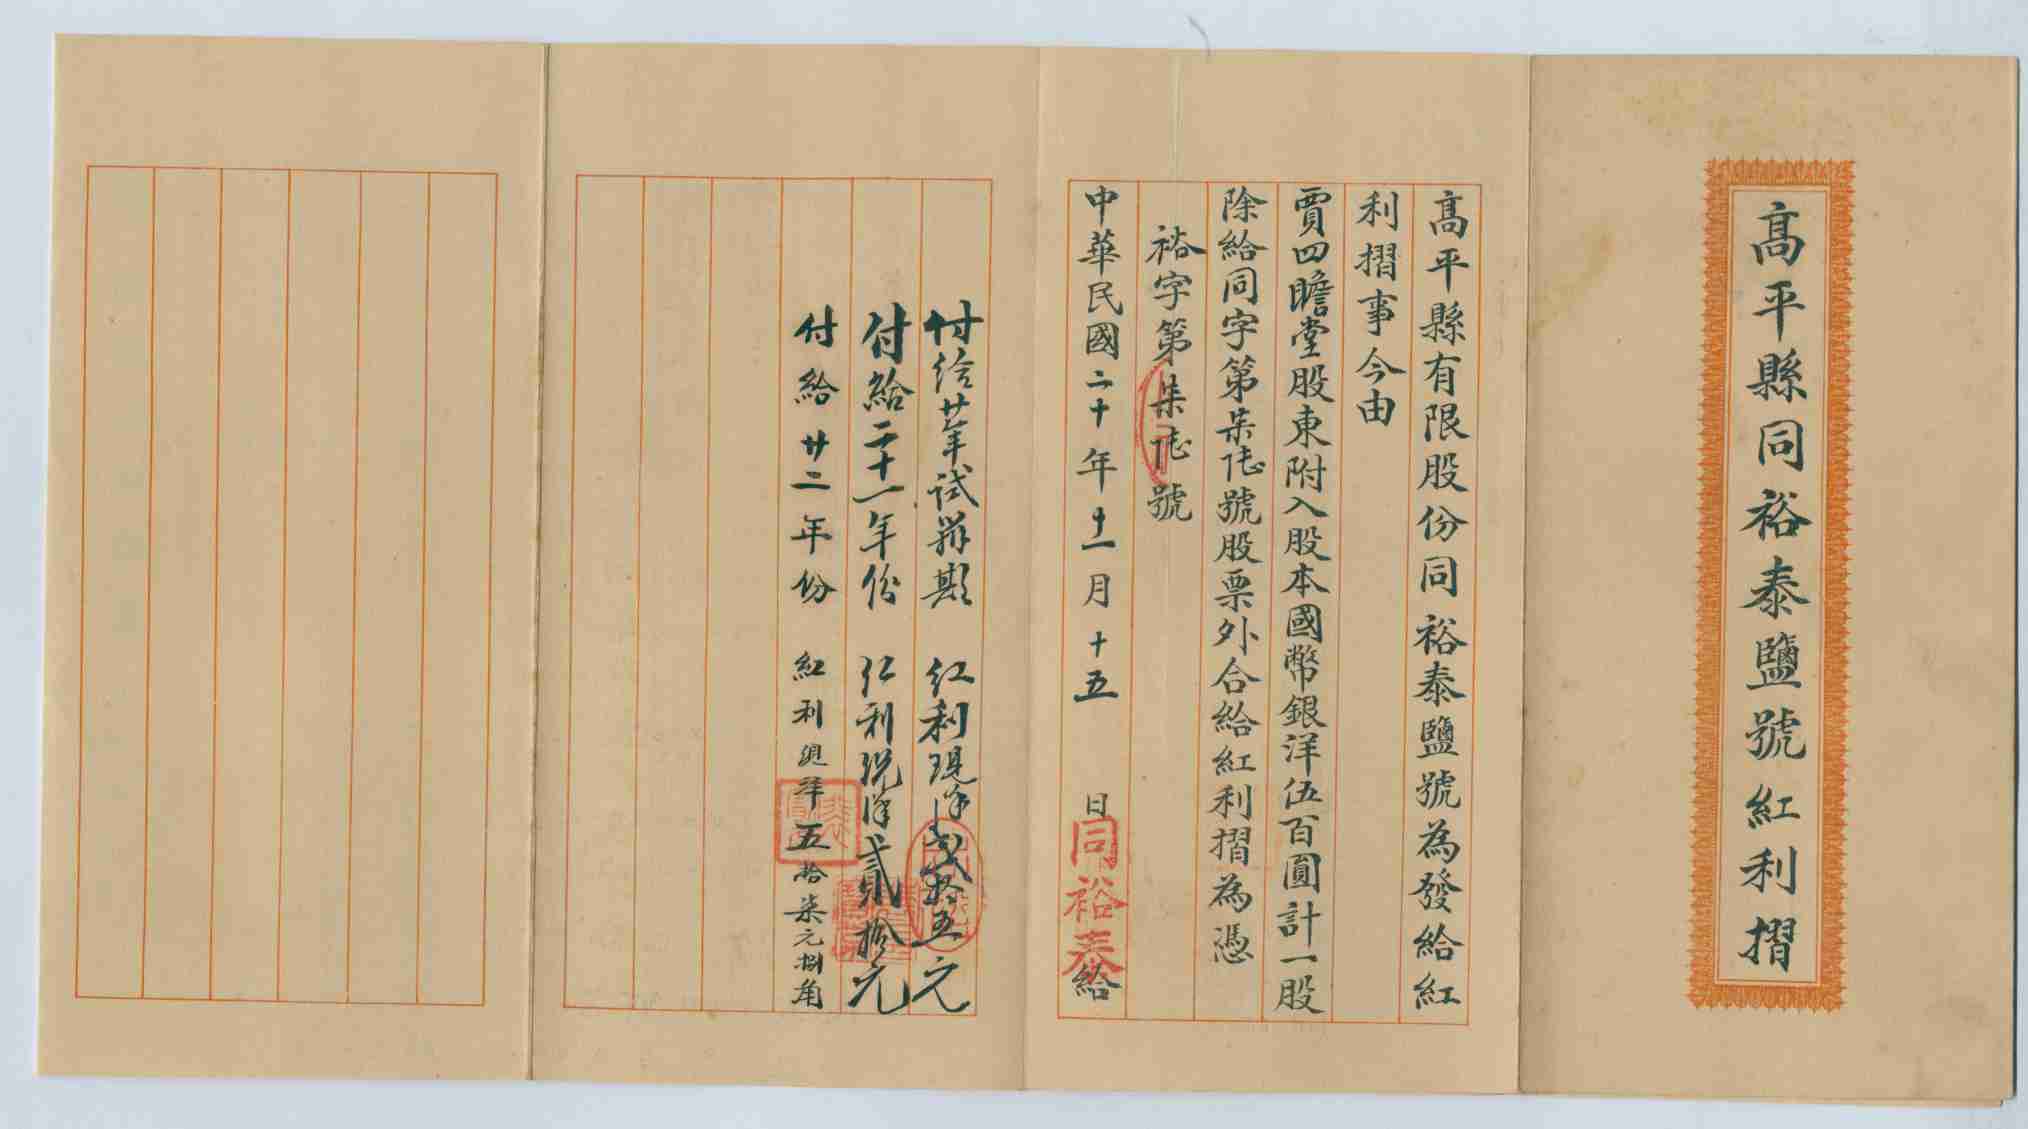 高平縣同裕泰鹽號紅利摺
高平縣有限股份同裕泰鹽號為發給紅
利摺事今由
賈四瞻堂股東附入股本國幣銀洋伍百圓計一股
除給同字第柒陆號股票外合給紅利摺為憑
裕字第柒陆號
中華民國二十年十一月十五日 同裕泰 給
付給廿年試辦期 紅利現洋貳拾五元
付給二十一年份 紅利現洋貳拾元
付給廿二年份 紅利現洋五拾柒元捌角